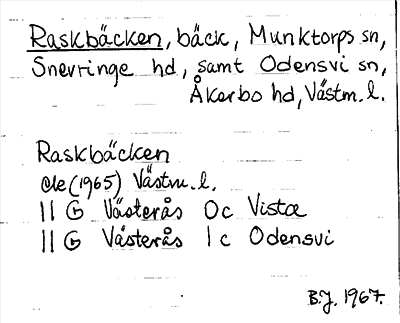 Raskbäcken, bäck, Munktorps sn,
Snevringe hd, samt Odensvi sn,
Åkerbo hd, Västm. l.
Raskbäcken
Ale (1965) Västm. l.
11 G Västerås 0c Vista
11 G Västerås 1c Odensvi
B.J. 1967.